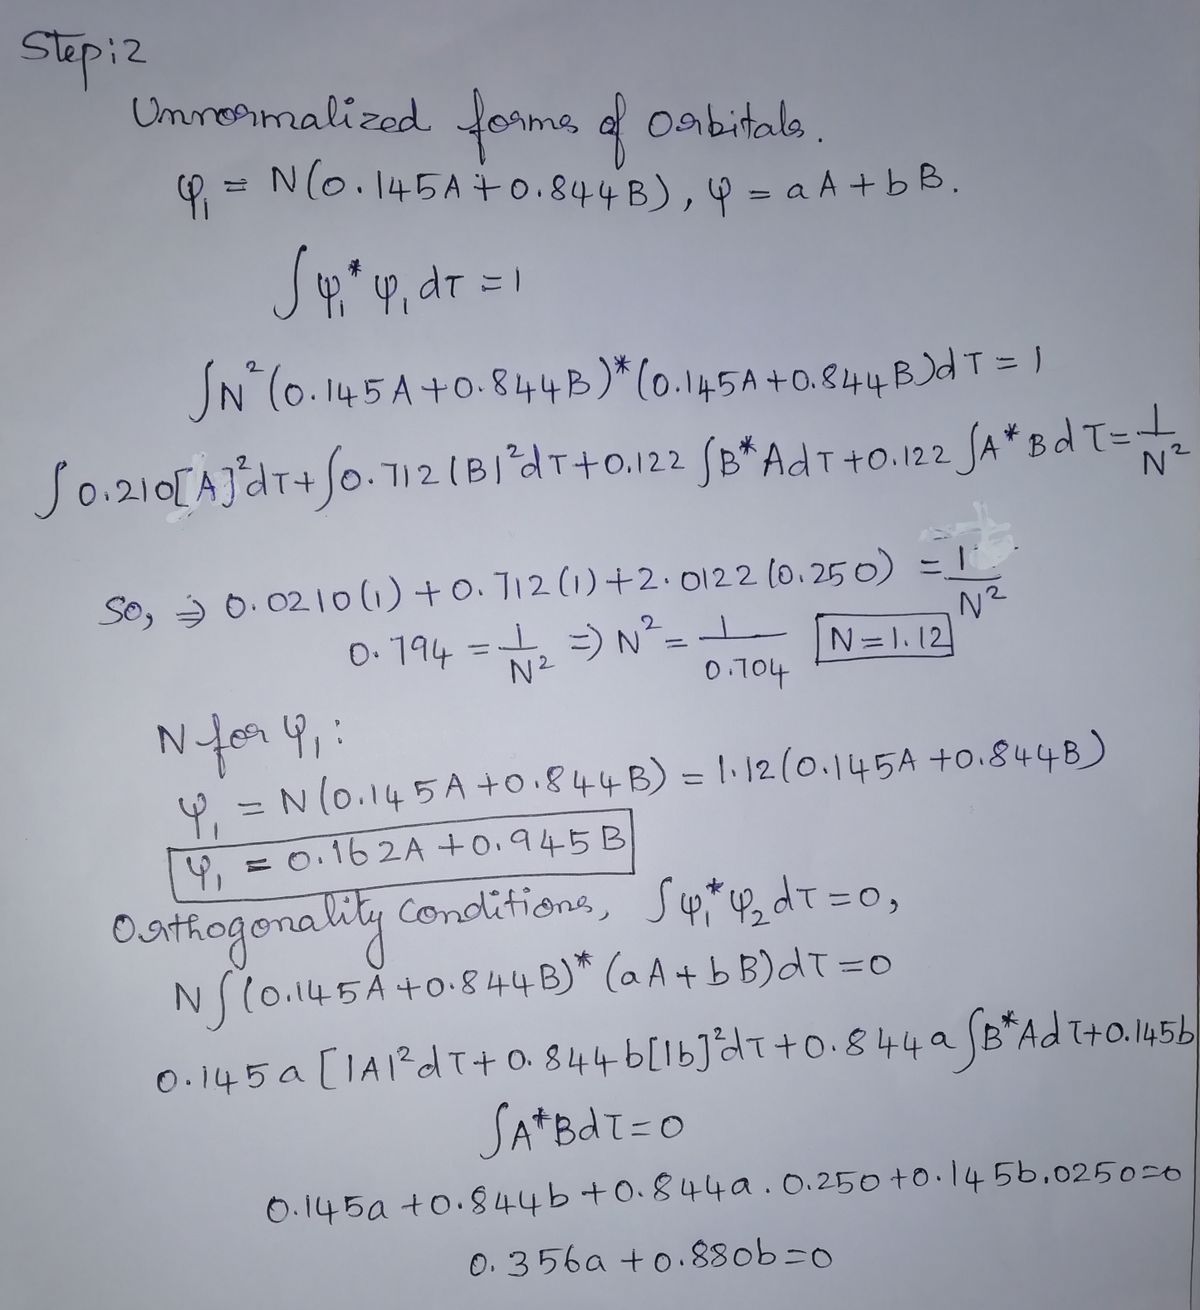 Step:2
Unnormalized forms of orbitals.
φ₁ = N(0.145A+0.844B), φ = aA+bB.
∫φ₁* φ₁ dτ = 1
∫N²(0.145A+0.844B)*(0.145A+0.844B)dτ = 1
∫0.210[A]²dτ+∫0.712|B|²dτ+0.122 ∫B*Adτ+0.122 ∫A*Bdτ=1/N²
So, ⇒ 0.0210(1)+0.712(1)+2.0122(0.250) = 1/N²
0.794 = 1/N² ⇒ N² = 1/0.704 N=1.12
N for φ₁:
φ₁ = N(0.145A+0.844B) = 1.12(0.145A+0.844B)
φ₁ = 0.162A+0.945B
Orthogonality Conditions, ∫φ₁*φ₂dτ=0,
N∫(0.145A+0.844B)*(aA+bB)dτ=0
0.145a[|A|²dτ+0.844b[|b]²dτ+0.844a∫B*Adτ+0.145b
∫A*Bdτ=0
0.145a+0.844b+0.844a.0.250+0.145b.0250=0
0.356a+0.880b=0